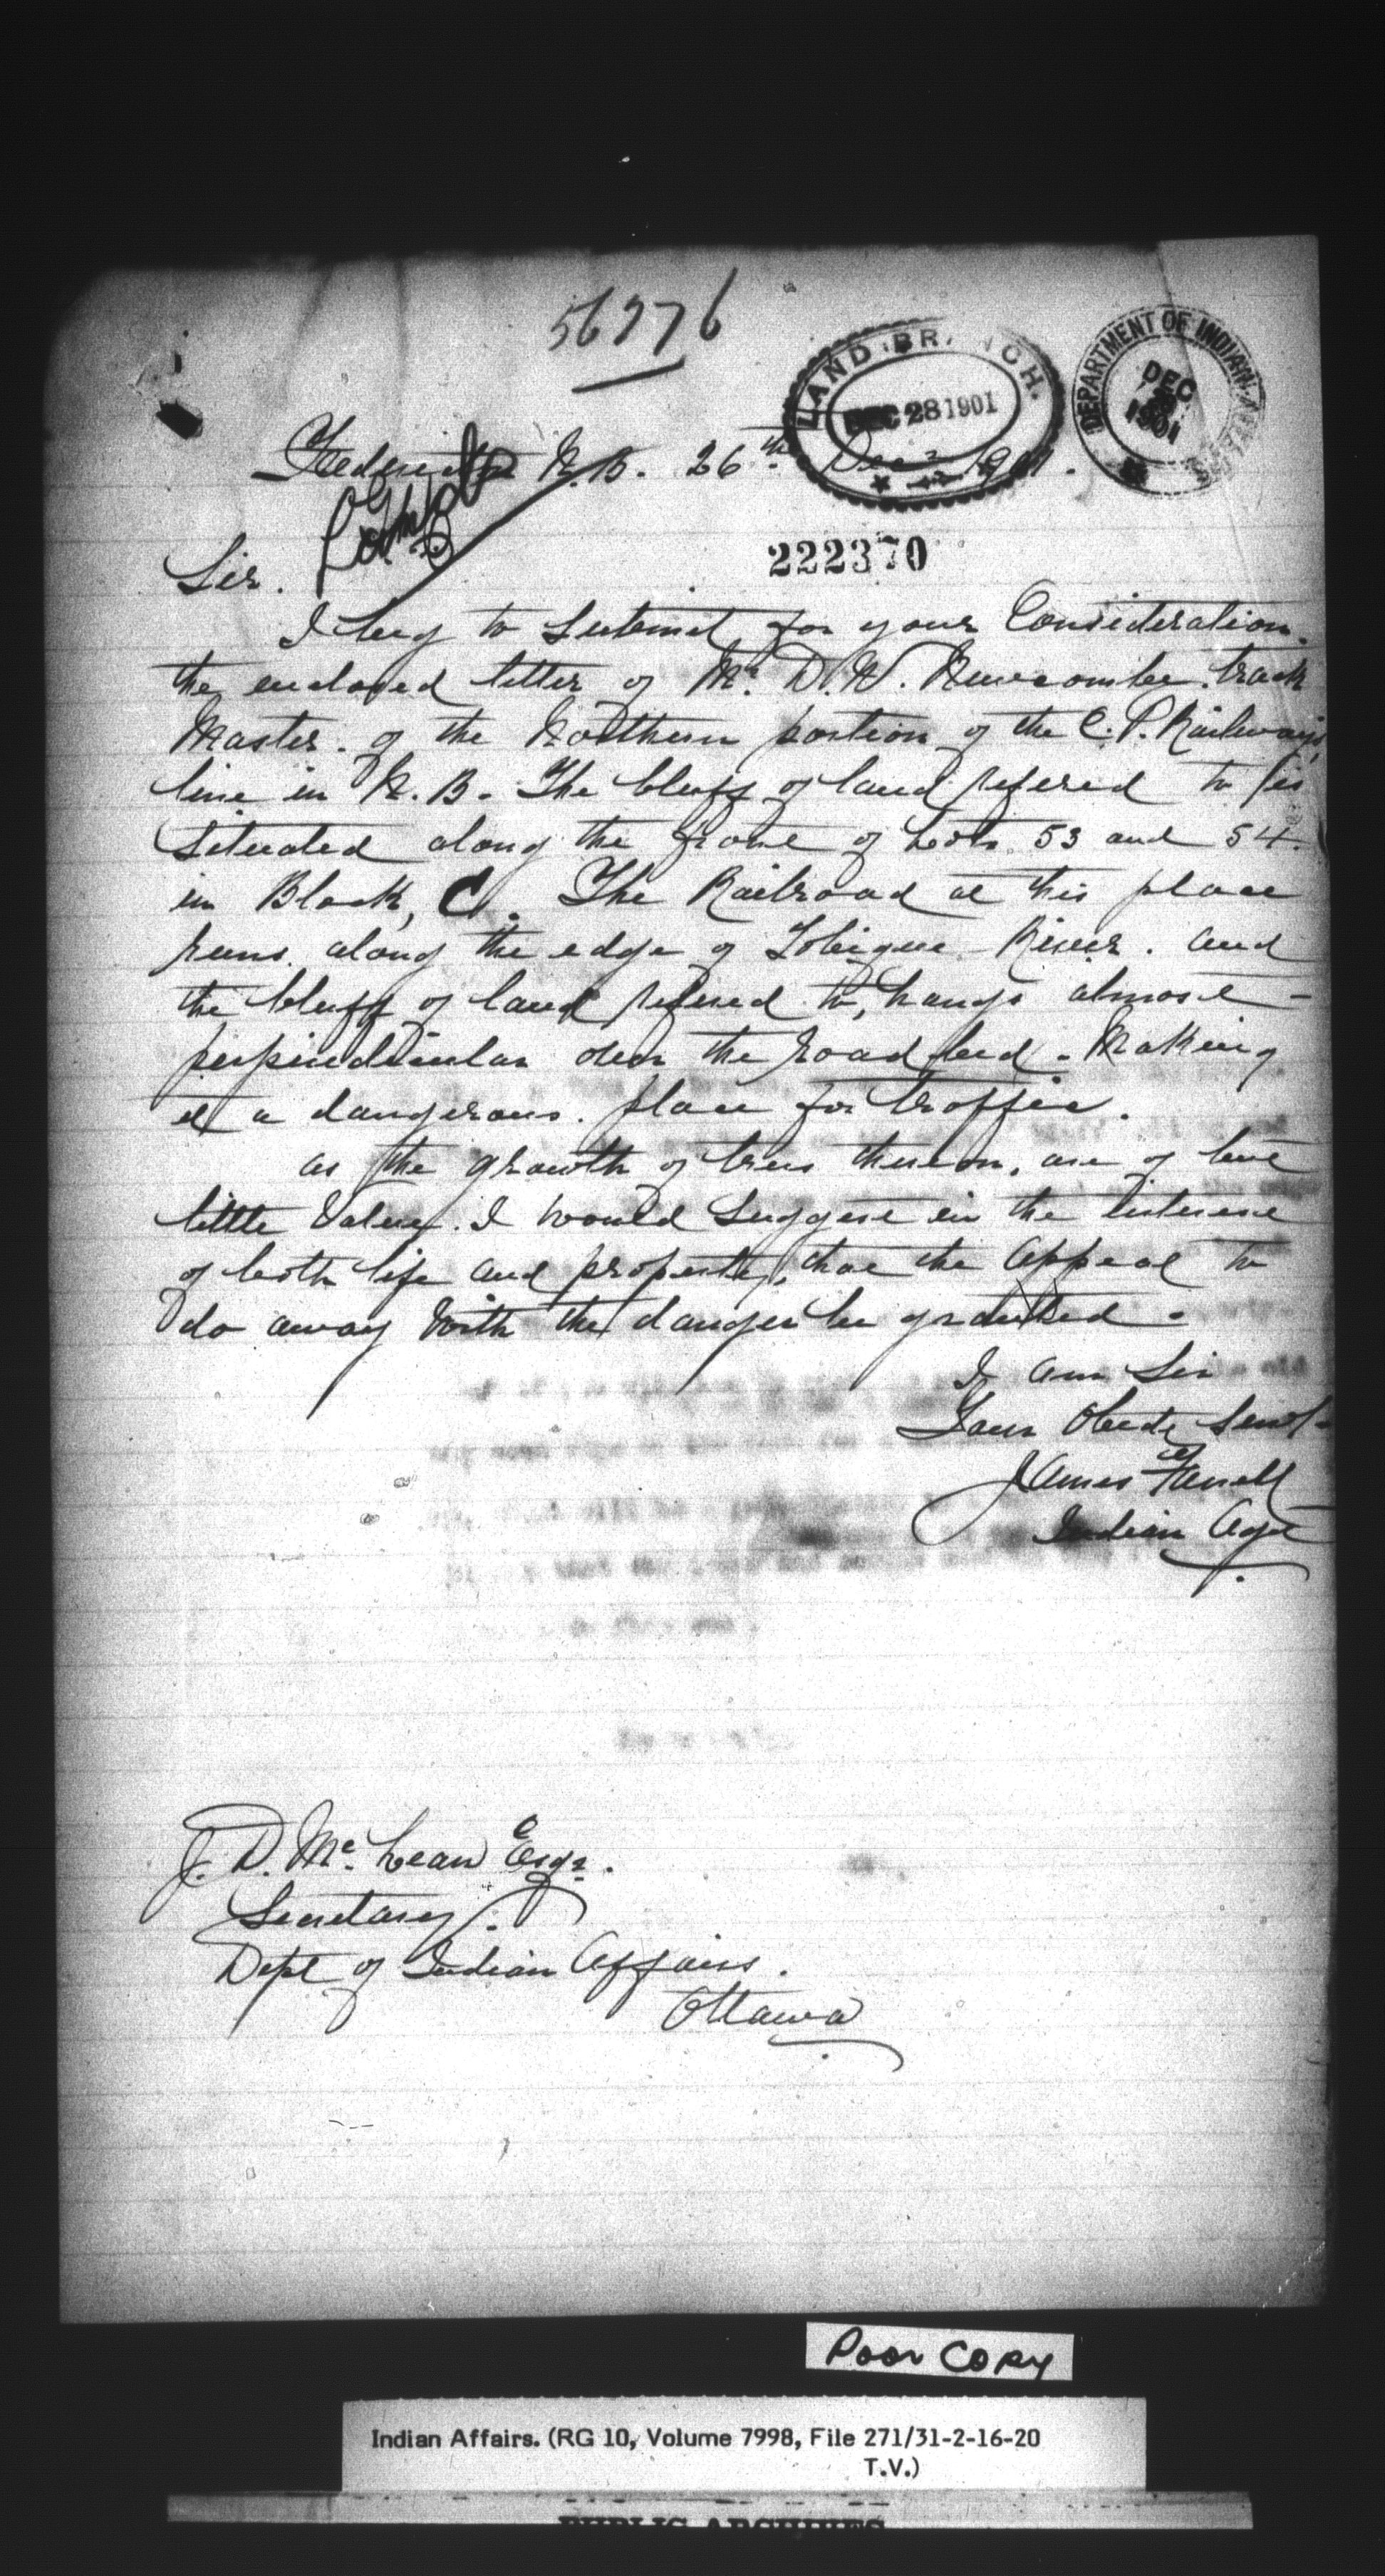 56776
LAND BRANCH.
DEC 28 1901
DEPARTMENT OF INDIAN AFFAIRS
DEC
1901
Fredericton N.B. 26th Decr 1901.
222370
Sir.
I beg to submit for your Consideration.
the enclosed letter of Mr. D.W. Newcombe. track
Master. of the Northern portion of the C.P. Railways
line in N.B. The bluff of land refered to is
Situated along the front of Lots 53 and 54.
in Block, C. The Railroad at this place
runs along the edge of Tobique River. and
the bluff of land refered to, hangs almost
perpindicular over the road bed. Making
it a dangerous. place for traffic.
as the growth of trees thereon, are of but
little Value. I would Suggest in the interest
of both life and property, that the appeal to
do away with the danger be granted.
I am Sir
Your Obedt Servt
James Farrell
Indian Agt
J. D. Mc. Lean Esqr.
Secretary.
Dept of Indian Affairs.
Ottawa
Poor Copy
Indian Affairs. (RG 10, Volume 7998, File 271/31-2-16-20
T.V.)
PUBLIC ARCHIVES